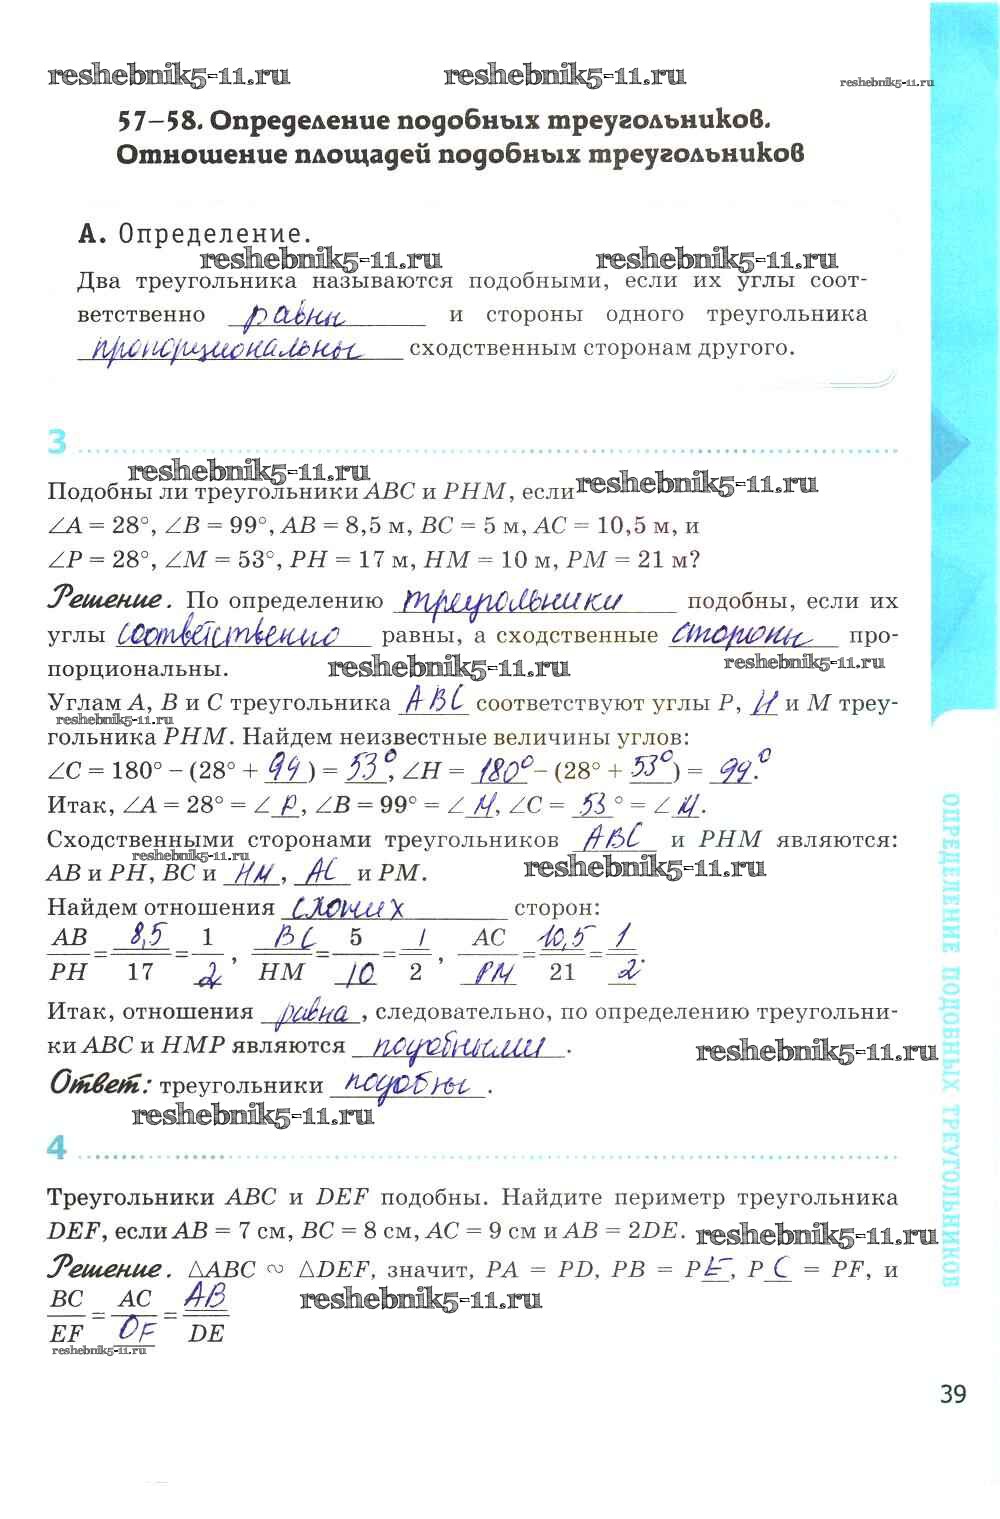 reshebnik5-11.ru reshebnik5-11.ru reshebnik5-11.ru
57–58. Определение подобных треугольников.
Отношение площадей подобных треугольников
А. Определение.
reshebnik5-11.ru reshebnik5-11.ru
Два треугольника называются подобными, если их углы соот-
ветственно равны и стороны одного треугольника
пропорциональны сходственным сторонам другого.
3
reshebnik5-11.ru reshebnik5-11.ru
Подобны ли треугольники ABC и PHM, если
∠A = 28°, ∠B = 99°, AB = 8,5 м, BC = 5 м, AC = 10,5 м, и
∠P = 28°, ∠M = 53°, PH = 17 м, HM = 10 м, PM = 21 м?
Решение. По определению треугольники подобны, если их
углы соответственно равны, а сходственные стороны про-
порциональны.
reshebnik5-11.ru reshebnik5-11.ru
Углам A, B и C треугольника ABC соответствуют углы P, H и M треу-
reshebnik5-11.ru
гольника PHM. Найдем неизвестные величины углов:
∠C = 180° – (28° + 99) = 53°, ∠H = 180° – (28° + 53°) = 99.°
Итак, ∠A = 28° = ∠ P, ∠B = 99° = ∠ H, ∠C = 53° = ∠ M.
Сходственными сторонами треугольников ABC и PHM являются:
reshebnik5-11.ru reshebnik5-11.ru
AB и PH, BC и HM, AC и PM.
Найдем отношения схожих сторон:
AB/PH = 8,5/17 = 1/2, BC/HM = 5/10 = 1/2, AC/PM = 10,5/21 = 1/2.
Итак, отношения равна, следовательно, по определению треугольни-
ки ABC и HMP являются подобными.
reshebnik5-11.ru
Ответ: треугольники подобны.
reshebnik5-11.ru
4
Треугольники ABC и DEF подобны. Найдите периметр треугольника
DEF, если AB = 7 см, BC = 8 см, AC = 9 см и AB = 2DE.
reshebnik5-11.ru
Решение. △ABC ∽ △DEF, значит, PA = PD, PB = PE, PC = PF, и
BC/EF = AC/DF = AB/DE
reshebnik5-11.ru
reshebnik5-11.ru
39
ОПРЕДЕЛЕНИЕ ПОДОБНЫХ ТРЕУГОЛЬНИКОВ